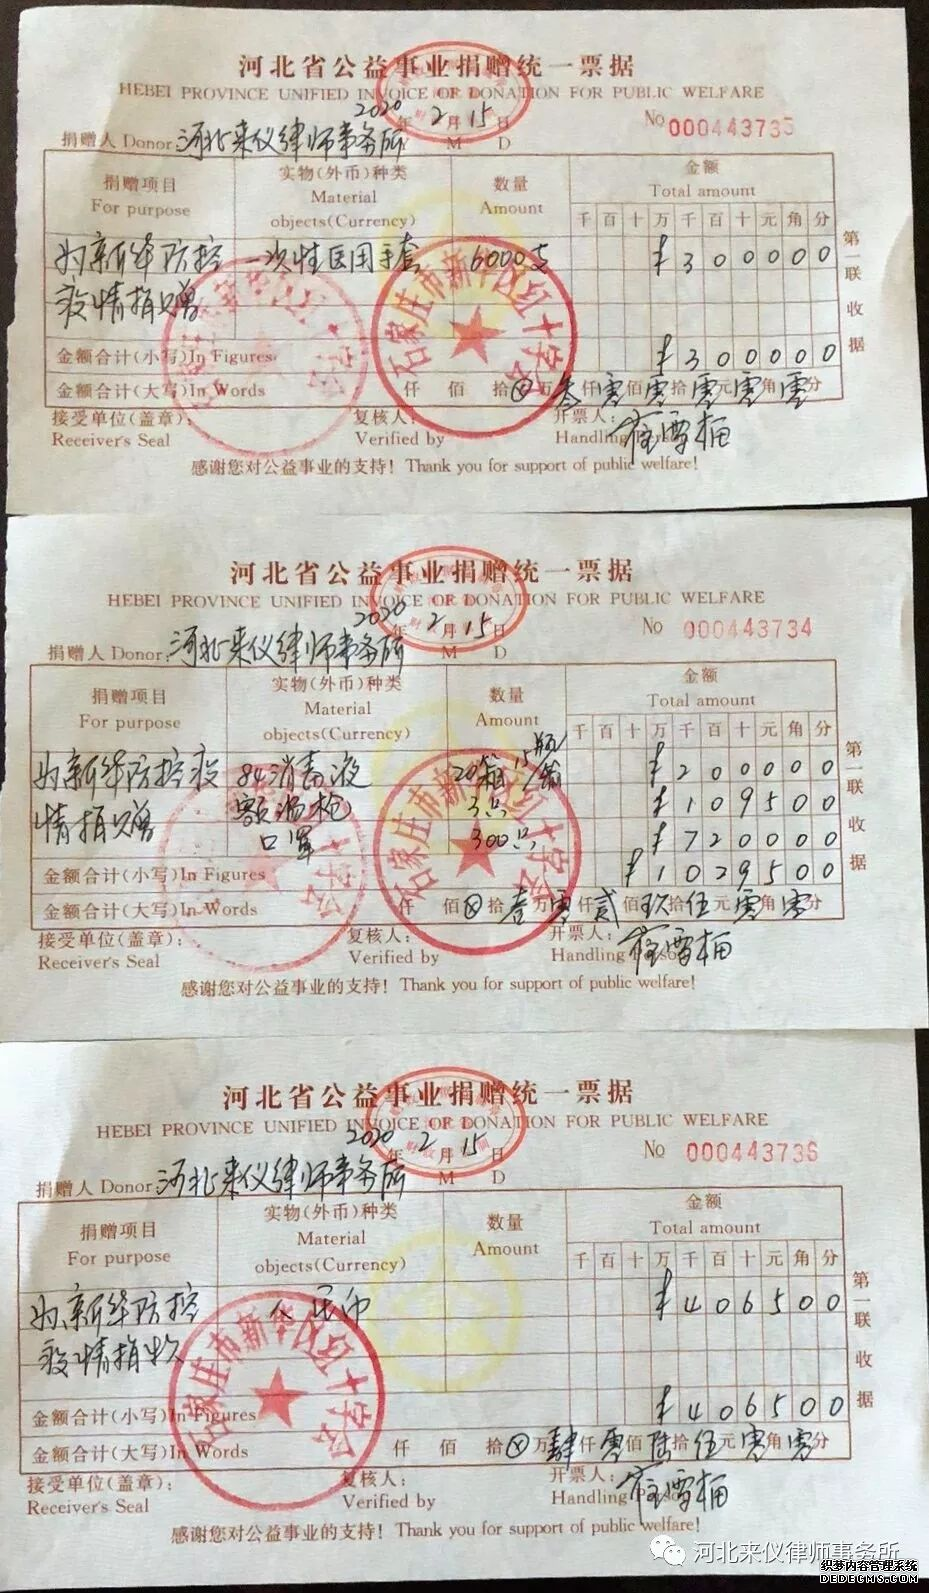 河北省公益事业捐赠统一票据
HEBEI PROVINCE UNIFIED INVOICE OF DONATION FOR PUBLIC WELFARE
2020年2月15日
Y M D
No 000443735
捐赠人 Donor: 河北来仪律师事务所
捐赠项目 For purpose
实物(外币)种类 Material objects(Currency)
数量 Amount
金额 Total amount
千 百 十 万 千 百 十 元 角 分
为新华防控 一次性医用手套 6000支 ¥300000
疫情捐赠
金额合计(小写)In Figures ¥300000
金额合计(大写)In Words 仟 佰 拾ⓧ万叁仟零佰零拾零元零角零分
接受单位(盖章): Receiver's Seal
复核人: Verified by
开票人: Handling Person
感谢您对公益事业的支持! Thank you for support of public welfare!
第一联 收据
石家庄市新华区红十字会
河北省公益事业捐赠统一票据
HEBEI PROVINCE UNIFIED INVOICE OF DONATION FOR PUBLIC WELFARE
2020年2月15日
M D
No 000443734
捐赠人 Donor: 河北来仪律师事务所
捐赠项目 For purpose
实物(外币)种类 Material objects(Currency)
数量 Amount
金额 Total amount
千 百 十 万 千 百 十 元 角 分
为新华防控疫 84消毒液 20箱 15瓶/箱 ¥200000
情捐赠 额温枪 3只 ¥109500
口罩 300只 ¥720000
金额合计(小写)In Figures ¥1029500
金额合计(大写)In Words 仟 佰ⓧ拾壹万零仟贰佰玖拾伍元零角零分
接受单位(盖章): Receiver's Seal
复核人: Verified by
开票人: Handling Person
感谢您对公益事业的支持! Thank you for support of public welfare!
第一联 收据
石家庄市新华区红十字会
河北省公益事业捐赠统一票据
HEBEI PROVINCE UNIFIED INVOICE OF DONATION FOR PUBLIC WELFARE
2020年2月15日
M D
No 000443736
捐赠人 Donor: 河北来仪律师事务所
捐赠项目 For purpose
实物(外币)种类 Material objects(Currency)
数量 Amount
金额 Total amount
千 百 十 万 千 百 十 元 角 分
为新华防控 人民币 ¥406500
疫情捐款
金额合计(小写)In Figures ¥406500
金额合计(大写)In Words 仟 佰 拾ⓧ万肆仟零佰陆拾伍元零角零分
接受单位(盖章): Receiver's Seal
复核人: Verified by
开票人: Handling Person
感谢您对公益事业的支持! Thank you for support of public welfare!
第一联 收据
石家庄市新华区红十字会
河北来仪律师事务所
织梦内容管理系统
DEDECMS.COM